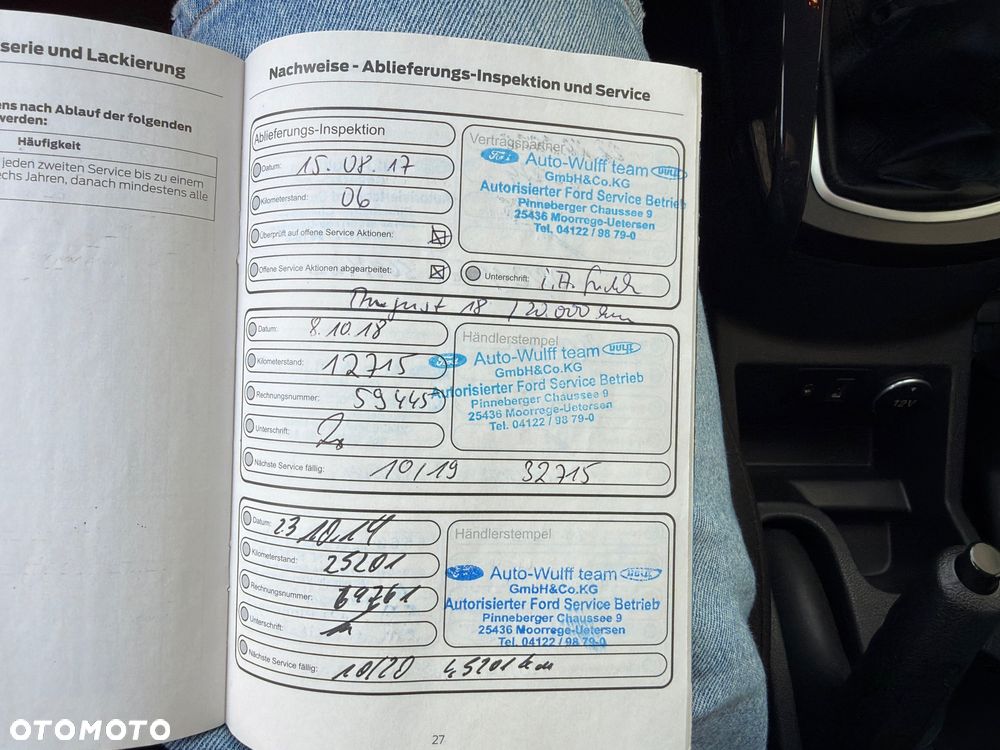 serie und Lackierung
ens nach Ablauf der folgenden
werden:
Häufigkeit
jeden zweiten Service bis zu einem
echs Jahren, danach mindestens alle
Nachweise - Ablieferungs-Inspektion und Service
Ablieferungs-Inspektion
Datum: 15.08.17
Kilometerstand: 06
Überprüft auf offene Service Aktionen:
Offene Service Aktionen abgearbeitet:
Vertragspartner
Ford Auto-Wulff team
GmbH&Co.KG
Autorisierter Ford Service Betrieb
Pinneberger Chaussee 9
25436 Moorrege-Uetersen
Tel. 04122 / 98 79-0
Unterschrift: i.A.
August 18 / 20.000 km
Datum: 8.10.18
Kilometerstand: 12715
Rechnungsnummer: 59445
Unterschrift:
Nächste Service fällig: 10/19 32715
Händlerstempel
Ford Auto-Wulff team
GmbH&Co.KG
Autorisierter Ford Service Betrieb
Pinneberger Chaussee 9
25436 Moorrege-Uetersen
Tel. 04122 / 98 79-0
Datum: 23 10.19
Kilometerstand: 25201
Rechnungsnummer: 69761
Unterschrift:
Nächste Service fällig: 10/20 45201 km
Händlerstempel
Auto-Wulff team
GmbH&Co.KG
Autorisierter Ford Service Betrieb
Pinneberger Chaussee 9
25436 Moorrege-Uetersen
Tel. 04122 / 98 79-0
27
12V
OTOMOTO